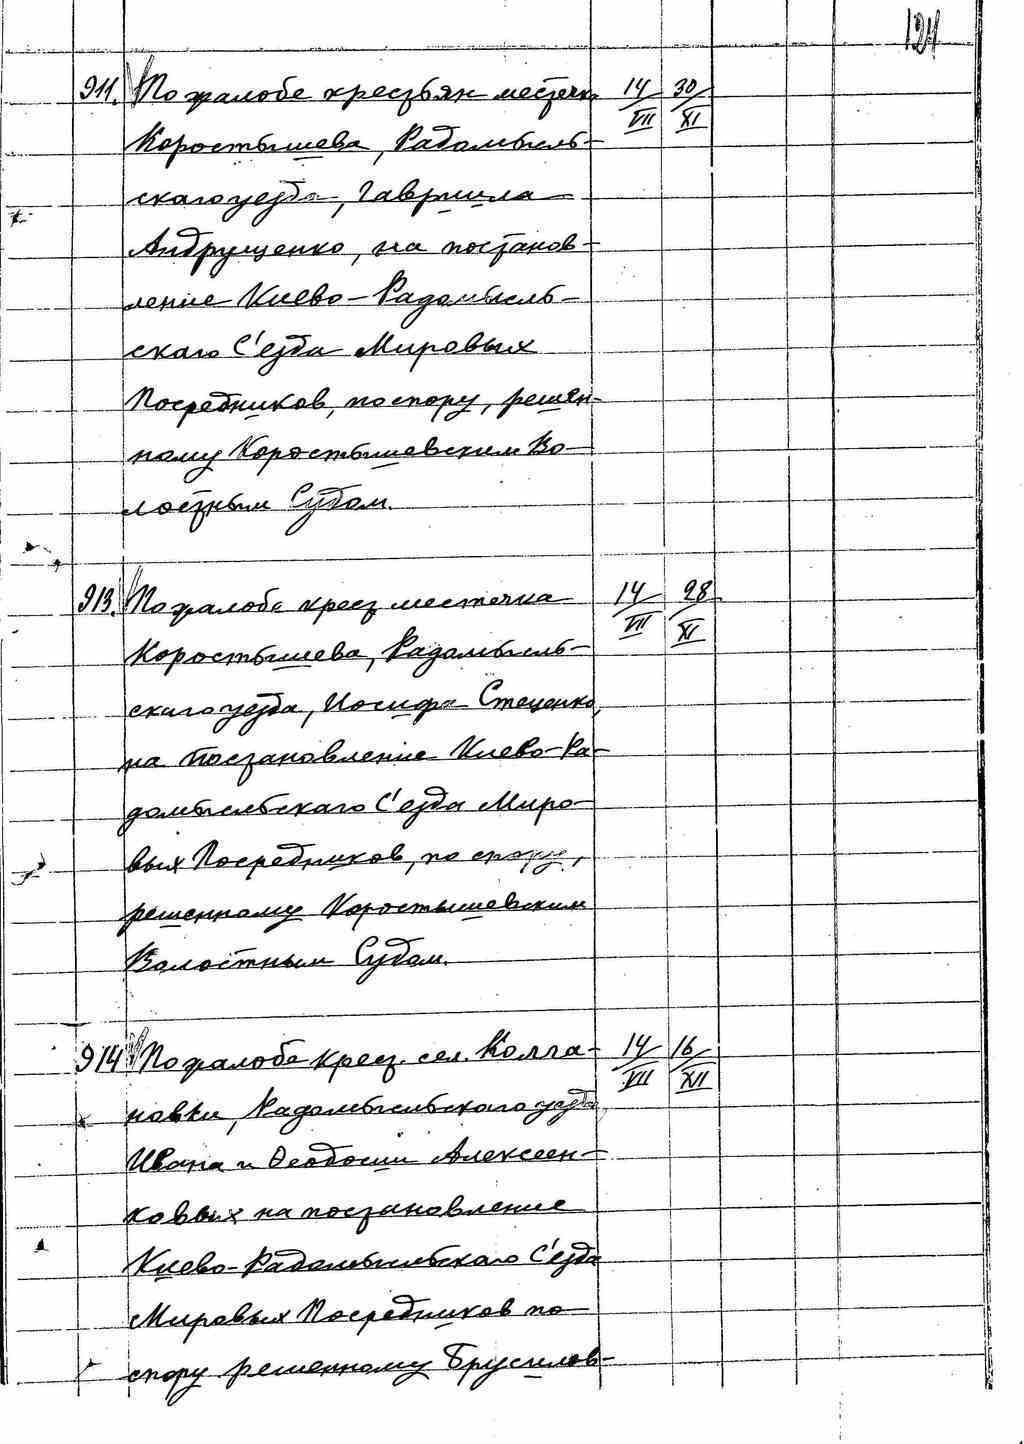 124
911. По жалобе крестьян местечк. 14/VII 30/XI
Коростышева, Радомысль-
скаго уезда, Гавриила
Андрущенко, на постанов-
ление Киево-Радомысль-
скаго С'езда Мировых
Посредников, по спору, решен-
ному Коростышевским Во-
лостным Судом.
913. По жалобе крест. местечка 14/VII 28/XI
Коростышева, Радомысль-
скаго уезда, Иосифа Стеценко,
на постановление Киево-Ра-
домысльскаго С'езда Миро-
вых Посредников, по спору,
решенному Коростышевским
Волостным Судом.
914 По жалобе крест. сел. Колга- 14/VII 16/XII
новки, Радомысльскаго уезда,
Ивана и Феодосии Алексеен-
ковых на постановление
Киево-Радомысльскаго С'езда
Мировых Посредников по
спору решенному Брусилов-